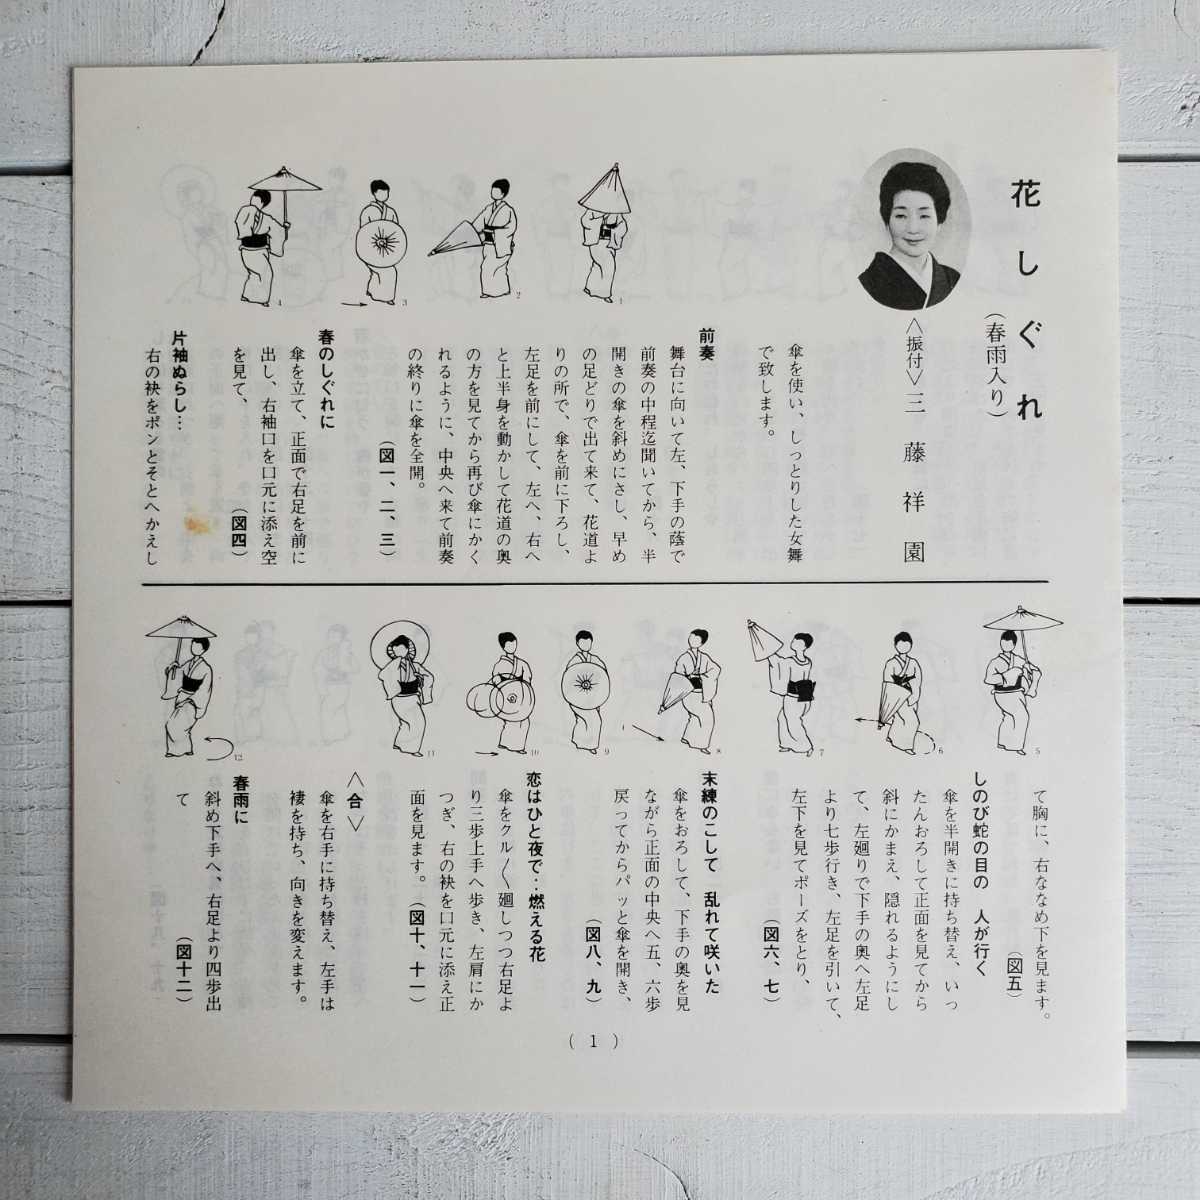 花しぐれ
（春雨入り）
＜振付＞三藤祥園
傘を使い、しっとりした女舞
で致します。
前奏
舞台に向いて左、下手の蔭で
前奏の中程迄聞いてから、半
開きの傘を斜めにさし、早め
の足どりで出て来て、花道よ
りの所で、傘を前に下ろし、
左足を前にして、左へ、右へ
と上半身を動かして花道の奥
の方を見てから再び傘にかく
れるように、中央へ来て前奏
の終りに傘を全開。
（図一、二、三）
春のしぐれに
傘を立て、正面で右足を前に
出し、右袖口を口元に添え空
を見て、
（図四）
片袖ぬらし…
右の袂をポンとそとへかえし
1
2
3
4
て胸に、右ななめ下を見ます。
（図五）
しのび蛇の目の 人が行く
傘を半開きに持ち替え、いっ
たんおろして正面を見てから
斜にかまえ、隠れるようにし
て、左廻りで下手の奥へ左足
より七歩行き、左足を引いて、
左下を見てポーズをとり、
（図六、七）
末練のこして 乱れて咲いた
傘をおろして、下手の奥を見
ながら正面の中央へ五、六歩
戻ってからパッと傘を開き、
（図八、九）
恋はひと夜で‥燃える花
傘をクル〱廻しつつ右足よ
り三歩上手へ歩き、左肩にか
つぎ、右の袂を口元に添え正
面を見ます。
（図十、十一）
＜合＞
傘を右手に持ち替え、左手は
褄を持ち、向きを変えます。
春雨に
斜め下手へ、右足より四歩出
て
（図十二）
5
6
7
8
9
10
11
12
( 1 )